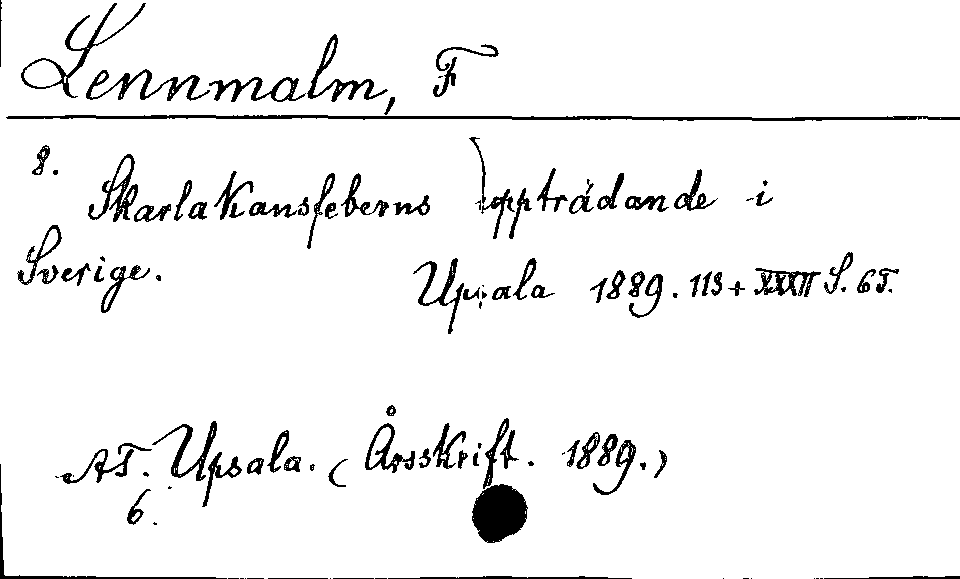 Lennmalm, F
8.
Skarlakansfeberns uppträdande i
Sverige.
Upsala 1889. 113 + XXXII S. 6T.
AT. Upsala. (Årsskrift. 1889.)
6.